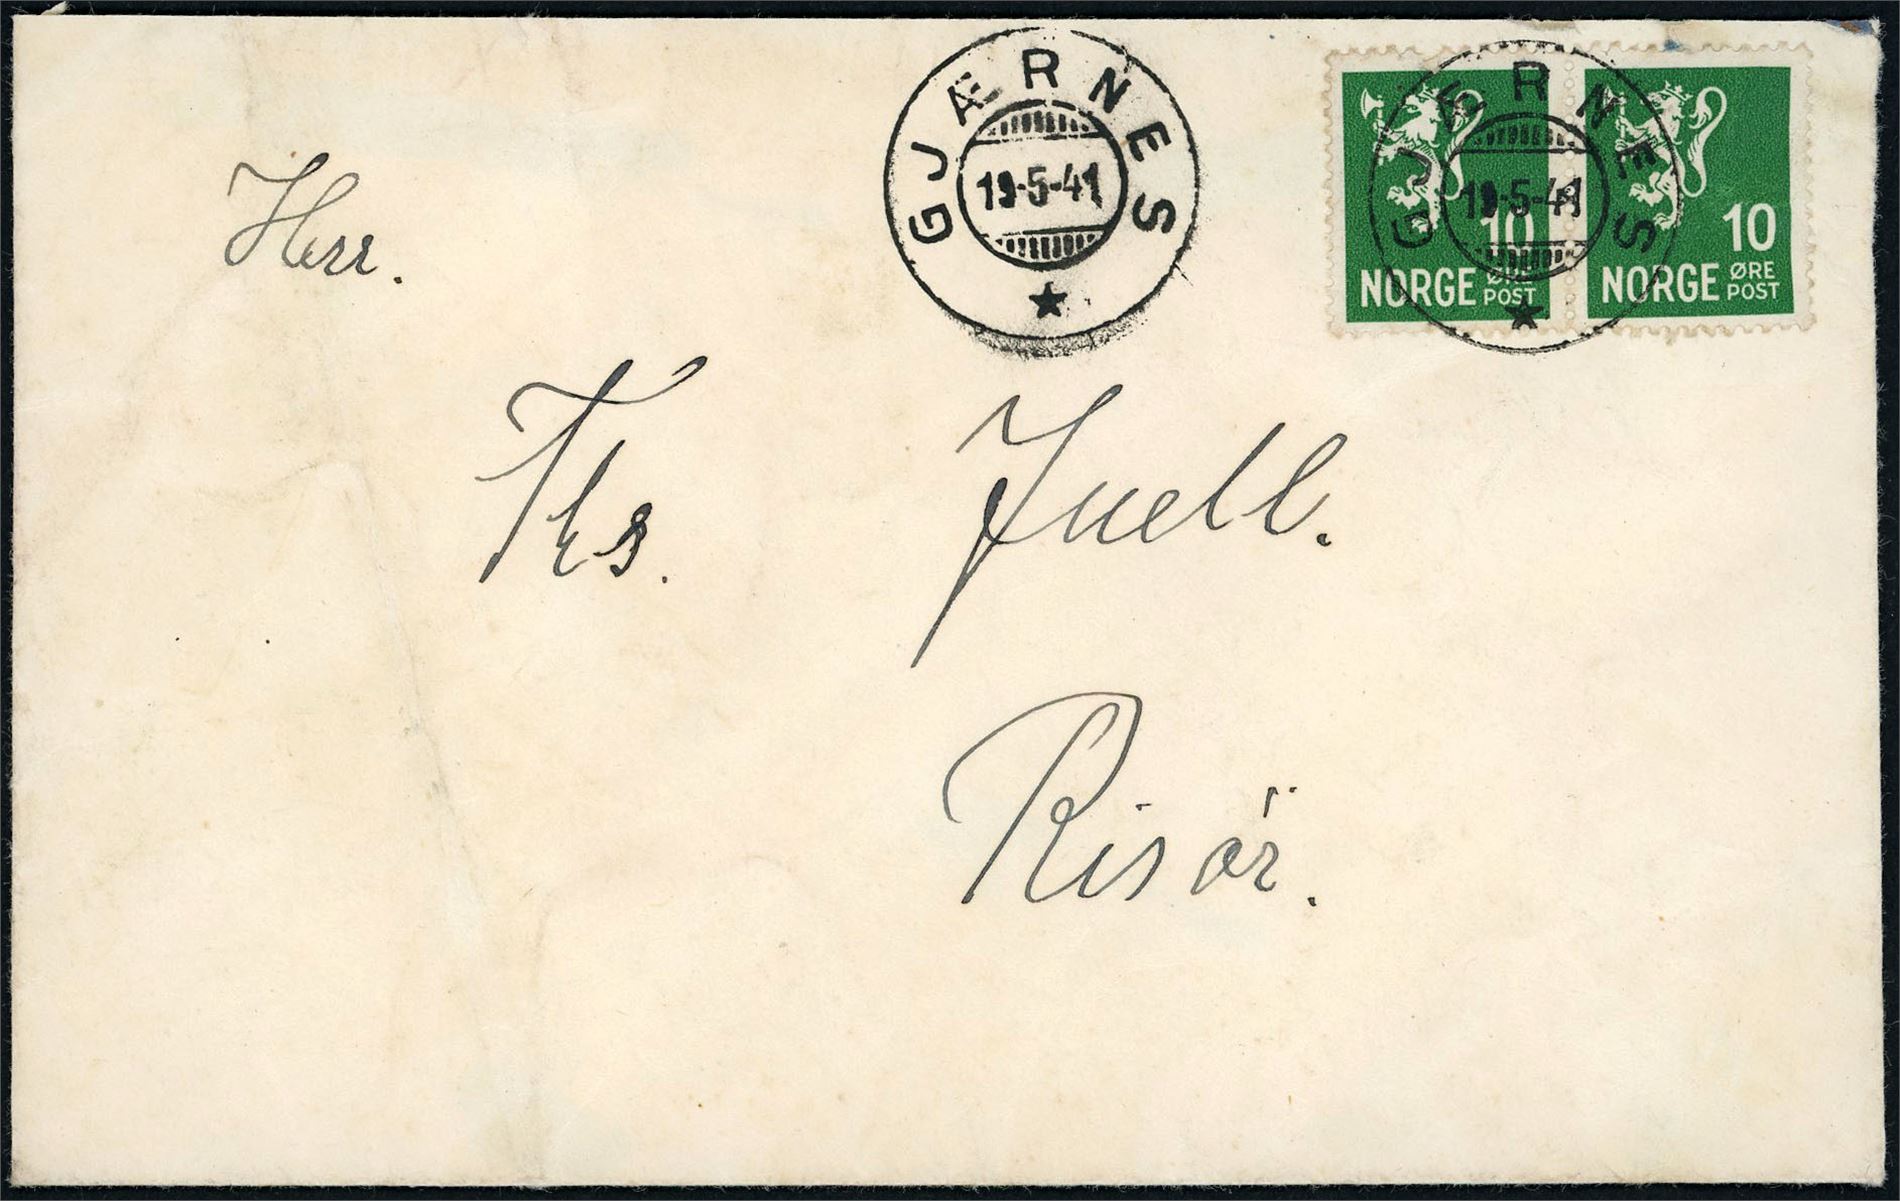 GJÆRNES
19-5-41
GJÆRNES
19-5-41
10
NORGE ØRE
POST
10
NORGE ØRE
POST
Herr.
Ths. Juell.
Risör.